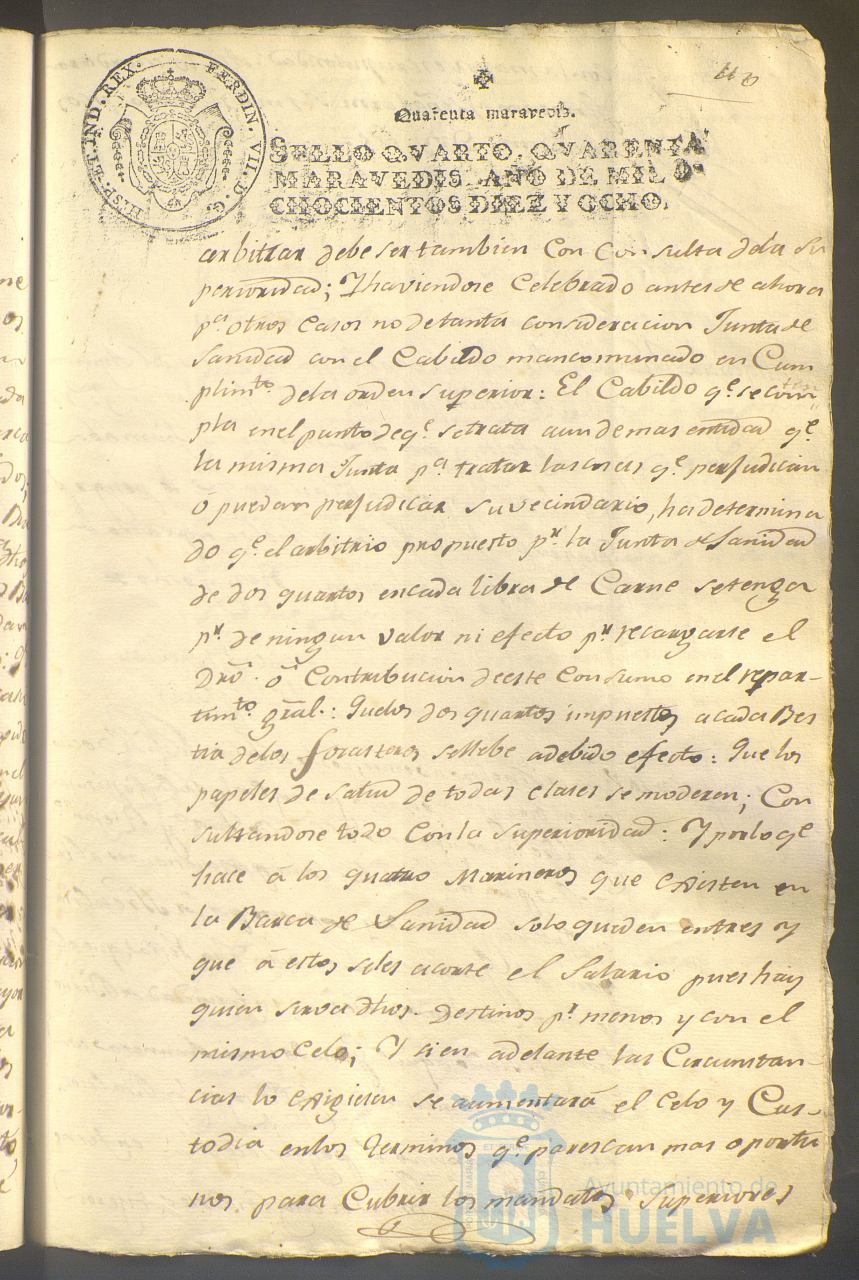 HISP. ET. IND. REX. FERDIN. VII. D. G.
Quarenta maravedis.
SELLO QVARTO, QVARENTA
MARAVEDIS, AÑO DE MIL O-
CHOCIENTOS DIEZ Y OCHO.
arbitrar debe ser tambien con consulta dela Su
perioridad; Y haviendose Celebrado antes de ahora
pa. otros casos no de tanta consideracion Junta de
Sanidad con el Cabildo mancomunado en Cum
plimto. dela orden superior: El Cabildo qe. se com
pla en el punto de qe. se trata aun de mas entidad qe.
la misma Junta pa. tratar las cosas qe. perjudican
ó puedan perjudicar su vecindario, ha determina
do qe. el arbitrio propuesto pr. la Junta de Sanidad
de dos quartos en cada libra de Carne se tenga
pr. de ningun valor ni efecto pr. recargarse el
Dro. ó Contribucion de este Consumo en el repar-
timto. gral.: Que los dos quartos impuestos a cada Bes
tia delos forasteros se llebe a debido efecto: Que los
papeles de Salud de todas clases se moderen; Con
sultandose todo con la superioridad: Y por lo qe
hace á los quatro Marineros que existen en
la Barca de Sanidad solo queden en tres y
que á estos seles acorte el Salario pues hay
quien sirva dhos. Destinos pr. menos y con el
mismo Celo; Y si en adelante las Circunstan-
cias lo exigiesen se aumentará el Celo y Cus-
todia en los terminos qe. parescan mas oportu
nos para Cubrir los mandatos Superiores
Ayuntamiento de
HUELVA